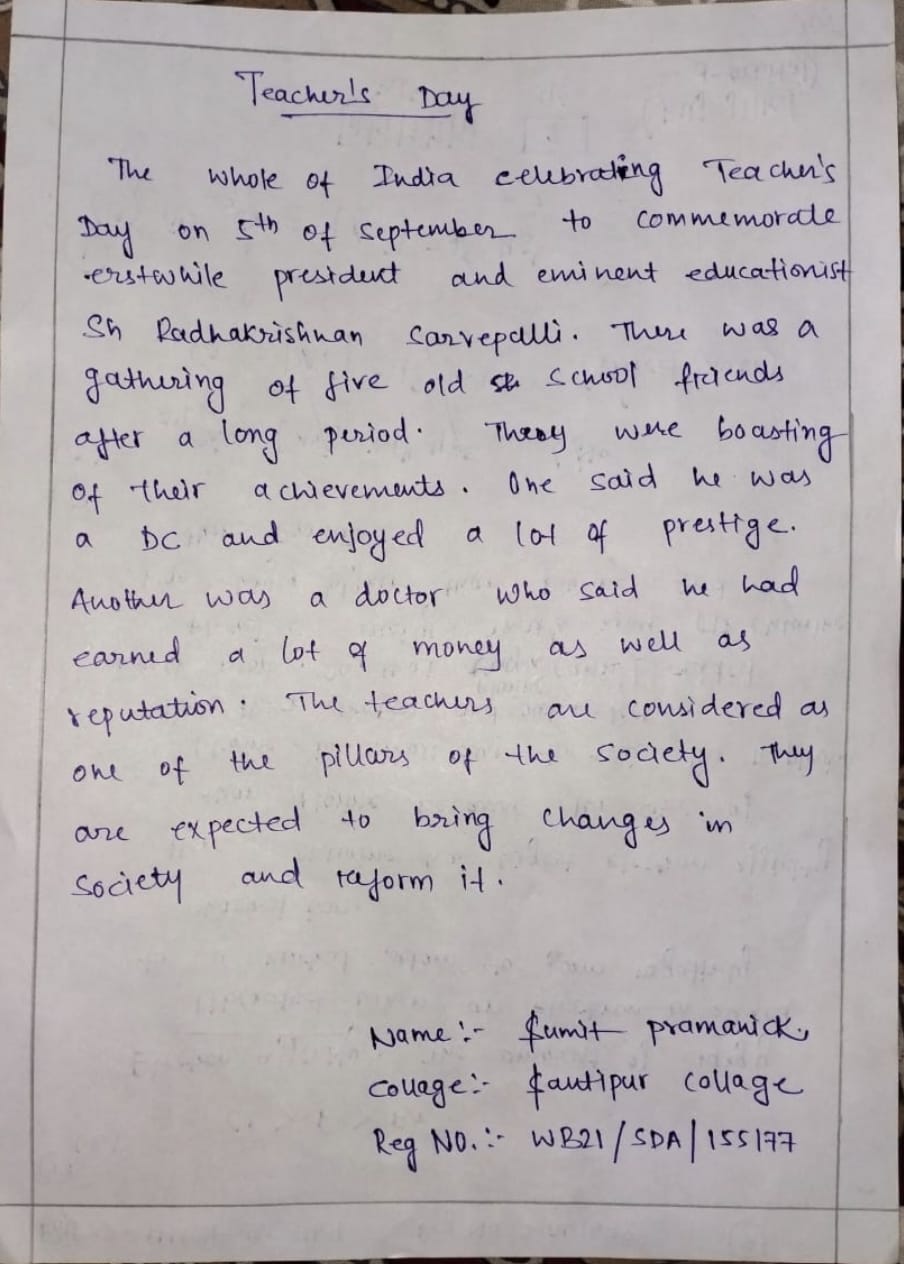 Teacher's Day
The whole of India celebrating Teacher's
Day on 5th of september to commemorate
erstwhile president and eminent educationist
Sh Radhakrishnan Sarvepalli. There was a
gathering of five old school friends
after a long period. They were boasting
of their achievements. One said he was
a DC and enjoyed a lot of prestige.
Another was a doctor who said he had
earned a lot of money as well as
reputation. The teachers are considered as
one of the pillars of the society. They
are expected to bring changes in
society and reform it.
Name :- Sumit pramanick
collage :- Santipur collage
Reg NO. :- WB21/SDA/155177